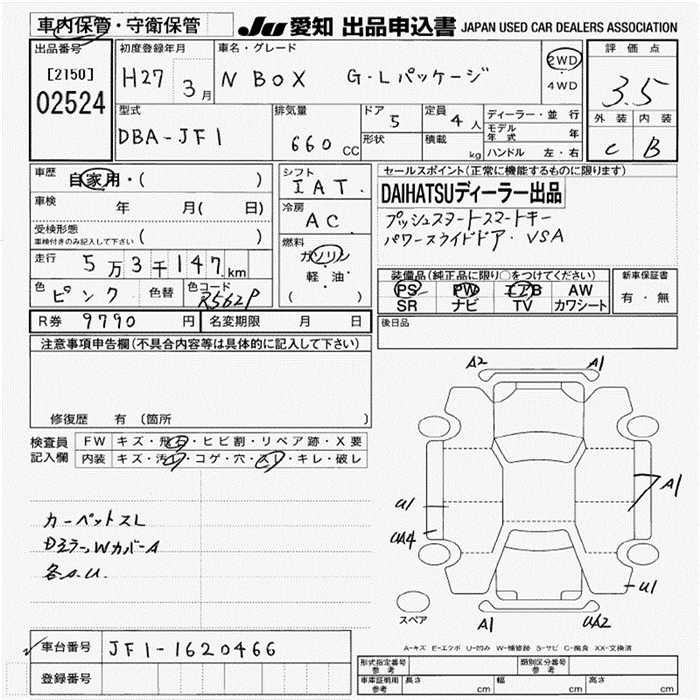 車内保管・守衛保管
JU 愛知 出品申込書 JAPAN USED CAR DEALERS ASSOCIATION
出品番号
[2150]
02524
初度登録年月
H27 3月
車名・グレード
N BOX G・Lパッケージ
2WD
・
4WD
評価点
3.5
外装 内装
C B
型式
DBA-JF1
排気量
660 CC
ドア 5
形状
定員 4人
積載 kg
ディーラー・並行
モデル年式 年
ハンドル 左・右
車歴 自家用・( )
車検 年 月( 日)
受検形態
車検付きのみ記入して下さい ( )
走行 5万3千147km
色 ピンク 色替 色コード R562P
シフト
IAT
冷房
AC
燃料
ガソリン
・
軽・油
( )
セールスポイント(正常に機能するものに限ります)
DAIHATSUディーラー出品
プッシュスタートスマートキー
パワースライドドア・VSA
装備品(純正品に限り○をつけてください)
PS PW エアB AW
SR ナビ TV カワシート
新車保証書
有・無
R券 9790 円 名変期限 月 日
後日品
注意事項申告欄(不具合内容等は具体的に記入して下さい)
修復歴 有 (箇所 )
検査員
記入欄
FW キズ・飛石・ヒビ割・リペア跡・X要
内装 キズ・汚れ・コゲ・穴・スレ・キレ・破レ
カーペットスレ
DミラーWカバーA
各S.U.
A2 A1
A1
U1
UA4
U1
A1 UA2
スペア
A-キズ E-エクボ U-凹み W-補修跡 S-サビ C-腐食 XX-交換済
車台番号 JF1-1620466
登録番号
形式指定番号
参考
類別区分番号
参考
車庫証明用
参考
長さ cm 幅 cm 高さ cm